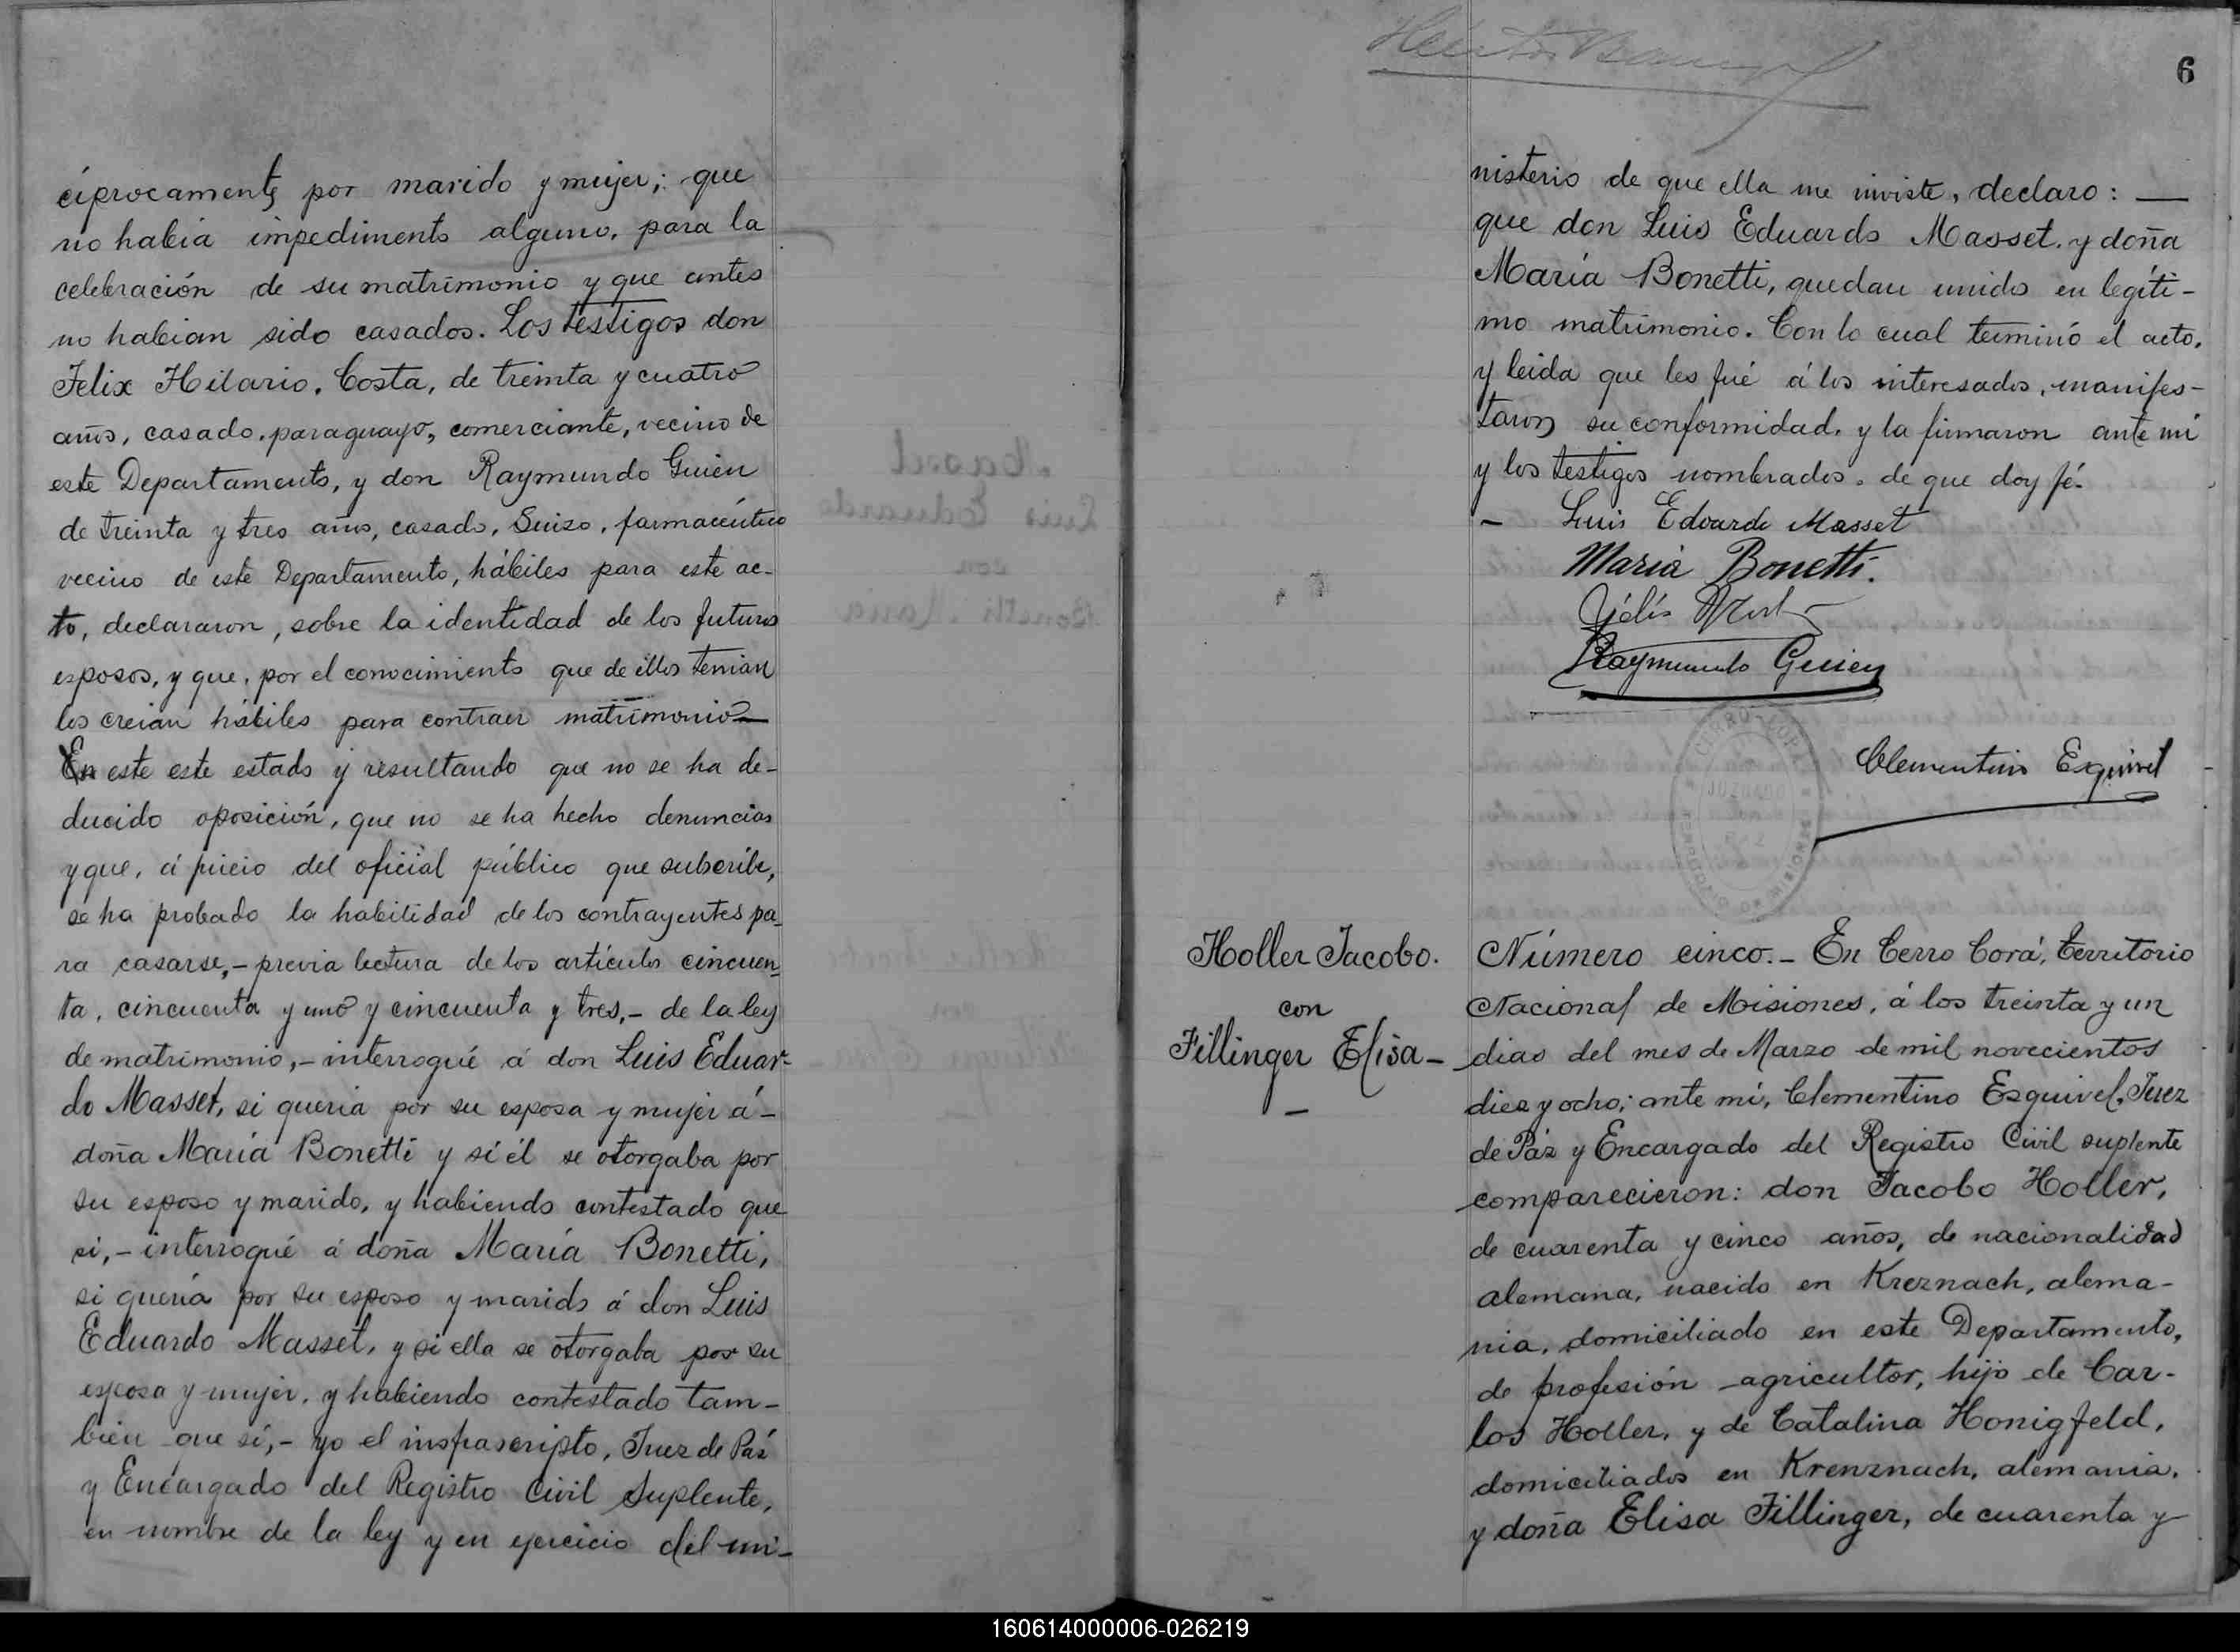 cíprocamente por marido y mujer; que
no había impedimento alguno, para la
celebración de su matrimonio y que antes
no habian sido casados. Los testigos don
Felix Hilario, Costa, de treinta y cuatro
años, casado, paraguayo, comerciante, vecino de
este Departamento, y don Raymundo Guien
de treinta y tres años, casado, Suizo, farmacéutico
vecino de este Departamento, hábiles para este ac-
to, declararon, sobre la identidad de los futuros
esposos, y que, por el conocimiento que de ellos tenian
los creian hábiles para contraer matrimonio—
En este este estado y resultando que no se ha de-
ducido oposición, que no se ha hecho denuncias
y que, á juicio del oficial público que subscribe,
se ha probado la habilidad de los contrayentes pa-
ra casarse,- previa lectura de los artículos cincuen-
ta, cincuenta y uno y cincuenta y tres,- de la ley
de matrimonio,- interrogué á don Luis Eduar-
do Masset, si queria por su esposa y mujer á-
doña María Bonetti y si él se otorgaba por
su esposo y marido, y habiendo contestado que
si,- interrogué á doña María Bonetti,
si quería por su esposo y marido á don Luis
Eduardo Masset, y si ella se otorgaba por su
esposa y mujer, y habiendo contestado tam-
bien que sí,- yo el insfrascripto, Juez de Paz
y Encargado del Registro Civil Suplente,
en nombre de la ley y en ejercicio del mi-
6
nisterio de que ella me inviste, declaro: —
que don Luis Eduardo Masset, y doña
María Bonetti, quedan unidos en legíti-
mo matrimonio. Con lo cual terminó el acto,
y leida que les fué á los interesados, manifes-
taron su conformidad, y la firmaron ante mi
y los testigos nombrados, de que doy fé.
- Luis Edoardo Masset
Maria Bonetti.
Raymundo Guien
JUZGADO
Clementino Esquivel
Holler Jacobo.
con
Fillinger Elisa-
Número cinco.- En Cerro Corá, territorio
Nacional de Misiones, á los treinta y un
dias del mes de Marzo de mil novecientos
diez y ocho; ante mí, Clementino Esquivel, Juez
de Páz y Encargado del Registro Civil suplente
comparecieron: don Jacobo Holler,
de cuarenta y cinco años, de nacionalidad
alemana, nacido en Kreznach, alema-
nia, domiciliado en este Departamento,
de profesión agricultor, hijo de Car-
los Holler, y de Catalina Honigfeld,
domiciliados en Krenznach, alemania,
y doña Elisa Fillinger, de cuarenta y
160614000006-026219